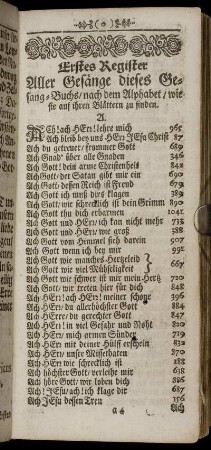 Erstes Register
Aller Gesänge dieses Ge-
sang-Buchs/ nach dem Alphabet/ wie
sie auf ihren Blättern zu finden.
A.
Ach! ach HErr! lehre mich 965
Ach bleib bey uns HErr JEsu Christ 87
Ach du getreuer/ frommer Gott 689
Ach Gnad' über alle Gnaden 346
Ach Gott! dein arme Christenheit 834
Ach Gott der Satan gibt mir ein 690
Ach Gott/ dessen Reich ist Freud 679
Ach Gott ich muß dirs klagen 889
Ach Gott wie schrecklich ist dein Grimm 890
Ach Gott thu dich erbarmen 1041
Ach Gott und HErr/ ich kan nicht mehr 718
Ach Gott und HErr/ wie groß 689
Ach Gott vom Himmel sieh darein 907
Ach Gott wenn ich bey mir 992
Ach Gott wie manches Hertzeleid
Ach Gott wie viel Mühseligkeit 667
Ach Gott wie schwer ist mir mein Hertz 720
Ach Gott/ wir treten hier für dich 848
Ach HErr! ach HErr! meiner schone 396
Ach HErr du allerhöchster Gott 884
Ach HErre/ du gerechter Gott 847
Ach HErr! in viel Gefahr und Noht 820
Ach HErr/ mich armen Sünder 719
Ach HErr mit deiner Hülff erschein 832
Ach HErr unsre Missethaten 870
Ach HErr wie schrecklich ist 188
Ach höchster Gott/ verleihe mir 636
Ach höre Gott/ wir loben dich 386
Ach! JEsu/ ach! ich klage dir 687
Ach JEsu dessen Treu 156
a 4 Ach